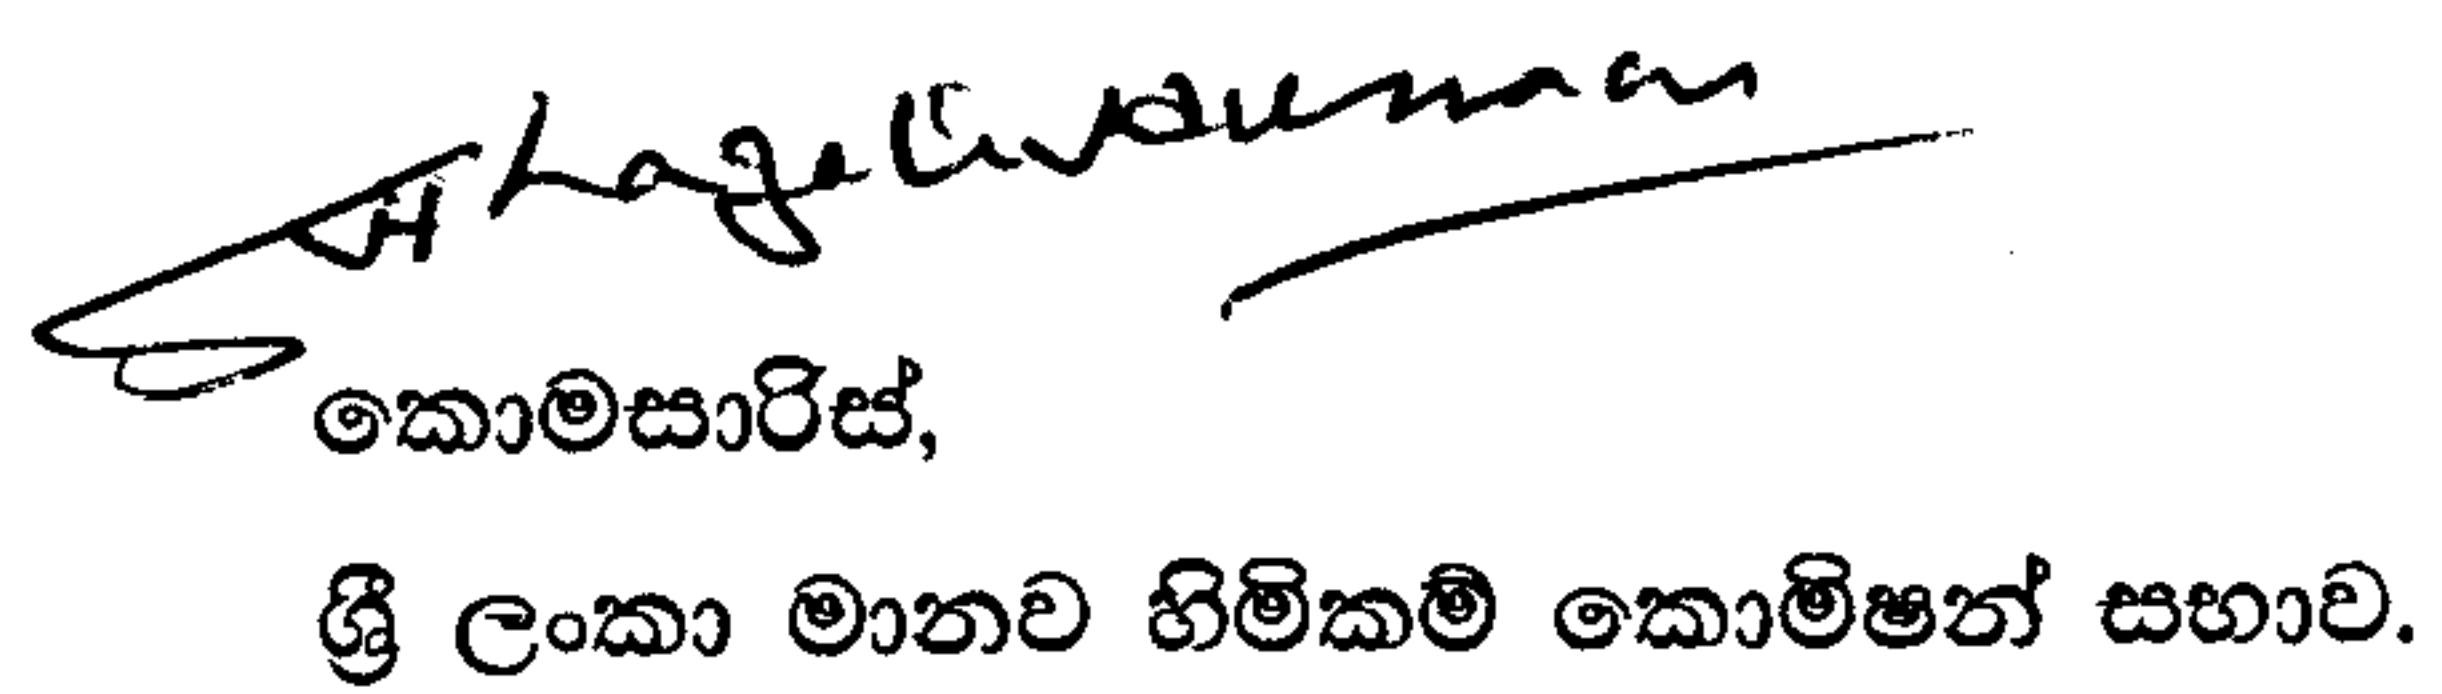 කොමසාරිස්,
ශ්‍රී ලංකා මානව හිමිකම් කොමිෂන් සභාව.